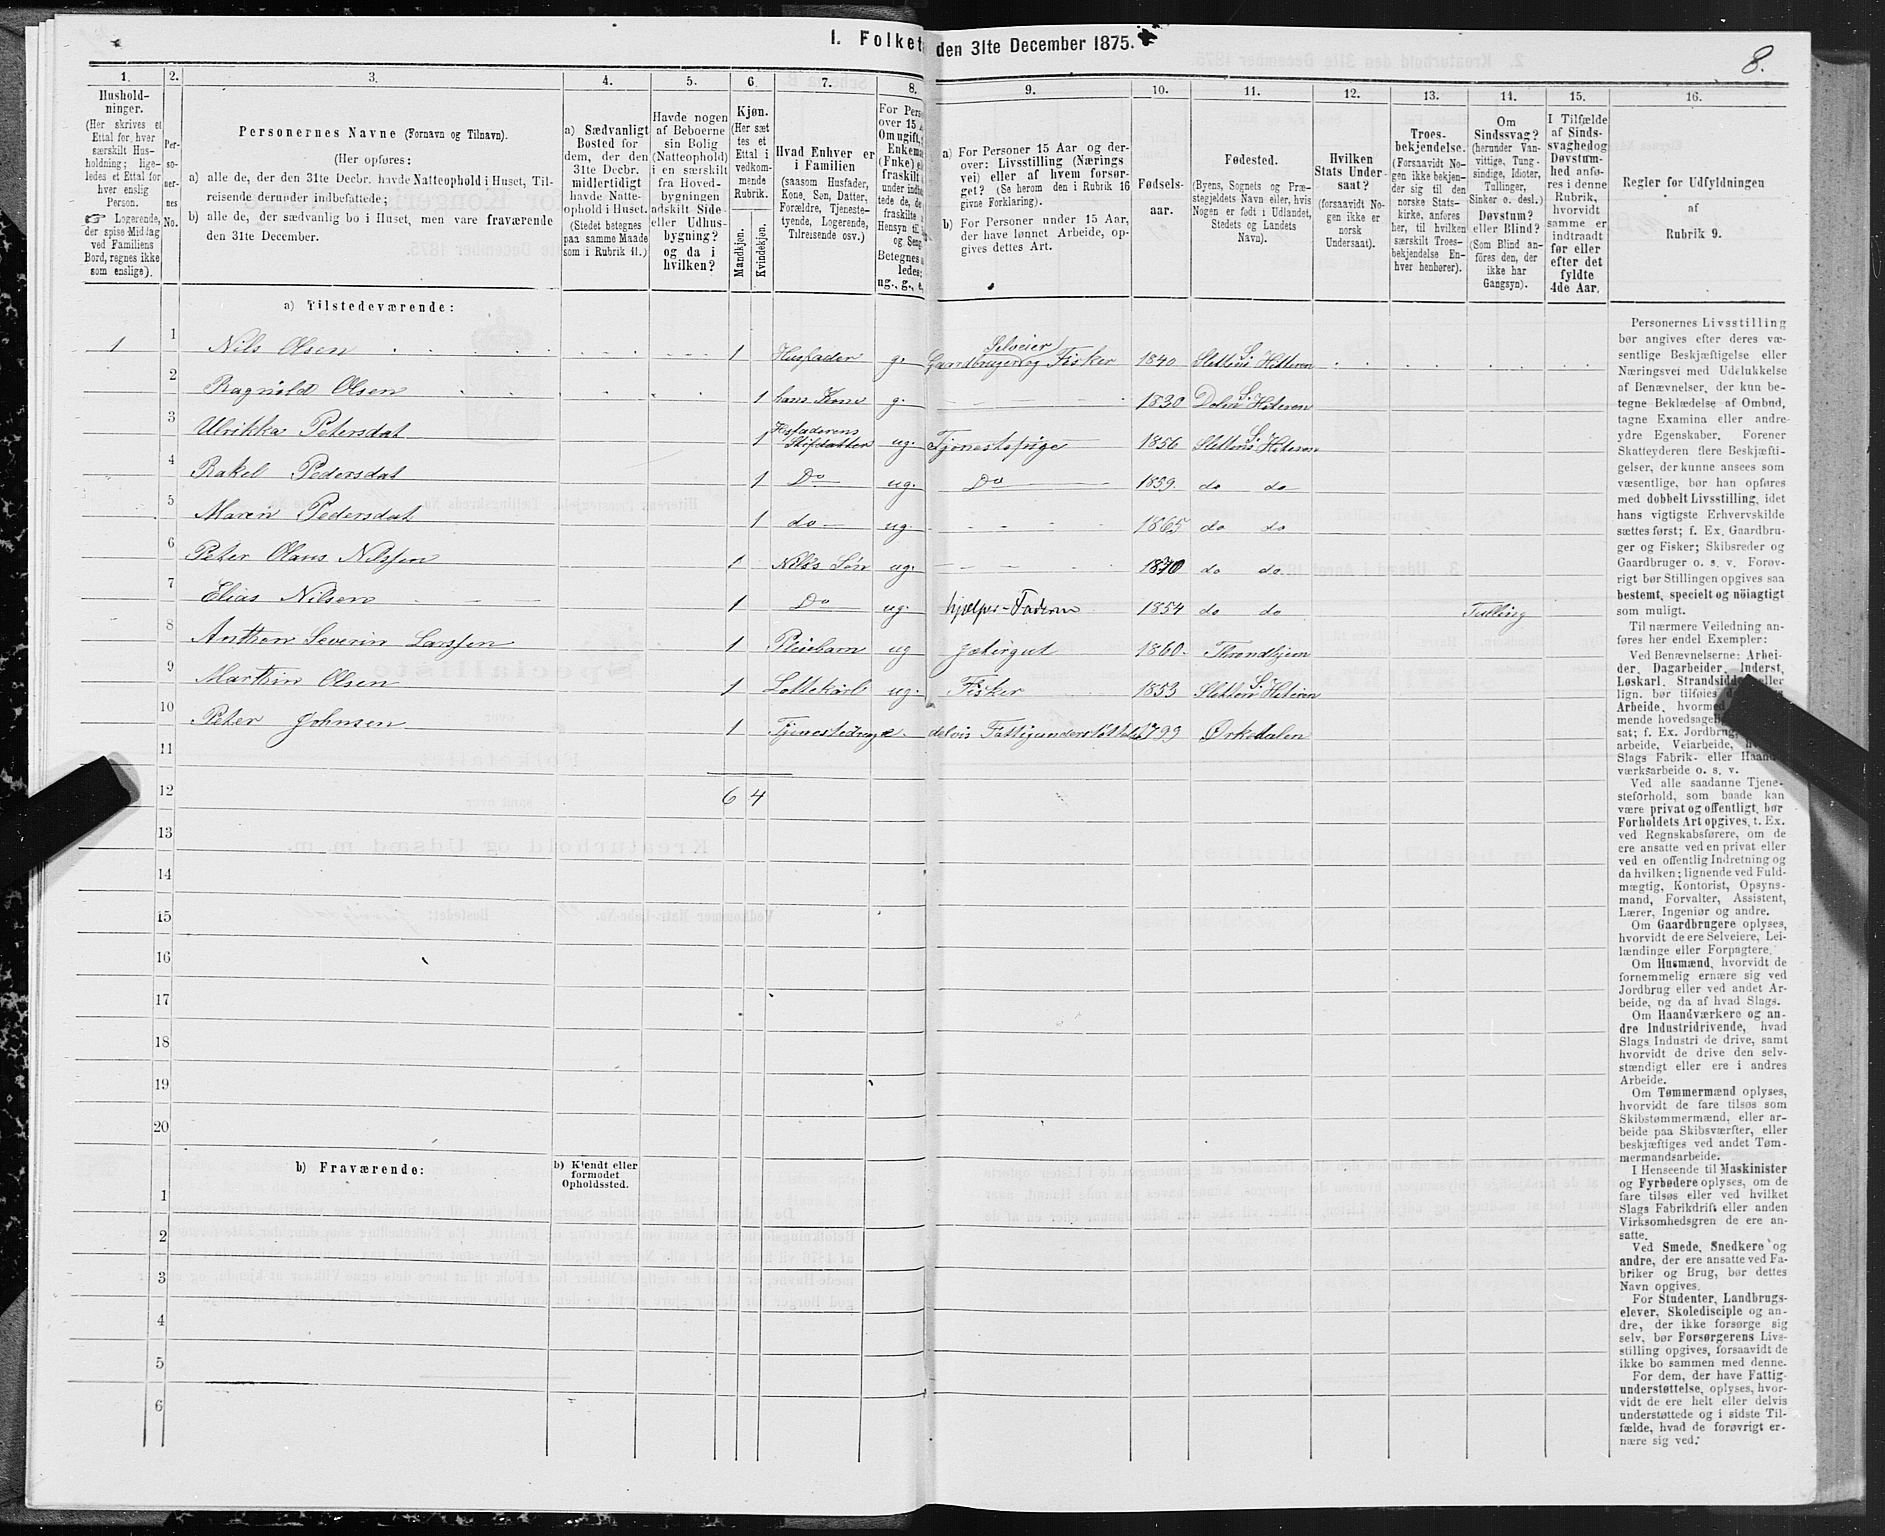 1. Folket den 31te December 1875.
8.
1. 2. 3. 4. 5. 6. 7. 8. 9. 10. 11. 12. 13. 14. 15. 16.
Hushold-
ninger.
(Her skrives et
Ettal for hver
særskilt Hus-
holdning; lige-
ledes et Ettal for
hver enslig
Person.
☞ Logerende,
der spise Middag
ved Familiens
Bord, regnes ikke
som enslige).
Per-
so-
ner-
nes
No.
Personernes Navne (Fornavn og Tilnavn).
(Her opføres:
a) alle de, der den 31te Decbr. havde Natteophold i Huset, Til-
reisende derunder indbefattede;
b) alle de, der sædvanlig bo i Huset, men vare fraværende
den 31te December.
a) Sædvanligt
Bosted for
dem, der den
31te Decbr.
midlertidigt
havde Natte-
ophold i Huset.
(Stedet betegnes
paa samme Maade
som i Rubrik 11.)
Havde nogen
af Beboerne
sin Bolig
(Natteophold)
i en særskilt
fra Hoved-
bygningen
adskilt Side-
eller Udhus-
bygning?
og da i
hvilken?
Kjøn.
(Her sæt-
tes et
Ettal i
vedkom-
mende
Rubrik.
Mandkjøn.
Kvindekjøn.
Hvad Enhver er
i Familien
(saasom Husfader,
Kone, Søn, Datter,
Forældre, Tjeneste-
tyende, Logerende,
Tilreisende osv.)
For Pers
over 15 A
Om ugift,
Enkema
(Enke) e
fraskilt
under indbe
tede de, de
fraskilte
Hensyn til
og Seng
Betegnes s
ledes:
ug., g., e.,
a) For Personer 15 Aar og der-
over: Livsstilling (Nærings
vei) eller af hvem forsør-
get? (Se herom den i Rubrik 16
givne Forklaring).
b) For Personer under 15 Aar,
der have lønnet Arbeide, op-
gives dettes Art.
Fødsels-
aar.
Fødested.
(Byens, Sognets og Præ-
stegjeldets Navn eller, hvis
Nogen er født i Udlandet,
Stedets og Landets
Navn).
Hvilken
Stats Under-
saat?
(forsaavidt No-
gen ikke er
norsk
Undersaat).
Troes-
bekjendelse.
(Forsaavidt No-
gen ikke bekjen-
der sig til den
norske Stats-
kirke, anføres
her, til hvilken
særskilt Troes-
bekjendelse En-
hver henhører).
Om
Sindssvag?
(herunder Van-
vittige, Tung-
sindige, Idioter,
Tullinger,
Sinker o. desl.)
Døvstum?
eller Blind?
(Som Blind an-
føres den, der
ikke har
Gangsyn).
I Tilfælde
af Sinds-
svaghed og
Døvstum-
hed anfø-
res i denne
Rubrik,
hvorvidt
samme er
indtraadt
før eller
efter det
fyldte
4de Aar.
Regler for Udfyldningen
af
Rubrik 9.
a) Tilstedeværende:
1 1 Nils Olsen 1 Husfader g. Selveier Gaardbruger og Fisker 1840 Slettens S. Hitteren
2 Ragnild Olsen 1 hans Kone g. 1830 Dolm S. Hiteren
3 Ulrikka Petersdat 1 Husfaderens Stifdatter ug. Tjenestepige 1856 Slettens S. Hiteren
4 Rakel Pedersdat 1 Do ug. Do 1859. do do
5 Maren Pedersdat 1 do ug. 1865 do do
6 Peter Olaus Nilssen 1 Nils's Søn ug. 1870 do do
7 Elias Nilsen 1 Do ug. hjælper Faderen 1854 do do Tulling
8 Anthon Severin Larssen 1 Pleiebarn ug Jætergut 1860. Throndhjem
9 Marthin Olsen 1 Lottekarl ug. Fisker 1853 Slettens S. Hiteren
10 Peter Johnsen 1 Tjenestedreng e. delvis Fattigunderstøttet 1799 Ørkedalen
11
12 6 4
13
14
15
16
17
18
19
20
b) Fraværende:
b) Kjendt eller
formodet
Opholdssted.
1
2
3
4
5
6
Personernes Livsstilling
bør angives efter deres væ-
sentlige Beskjæftigelse eller
Næringsvei med Udelukkelse
af Benævnelser, der kun be-
tegne Beklædelse af Ombud,
tagne Examina eller andre
ydre Egenskaber. Forener
Skatteyderen flere Beskjæfti-
gelser, der kunne ansees som
væsentlige, bør han opføres
med dobbelt Livsstilling, idet
hans vigtigste Erhvervskilde
sættes først; f. Ex. Gaardbru-
ger og Fisker; Skibsreder og
Gaardbruger o. s. v. Forøv-
rigt bør Stillingen opgives saa
bestemt, specielt og nöiagtigt
som muligt.
Til nærmere Veiledning an-
føres her endel Exempler:
Ved Benævnelserne: Arbei-
der, Dagarbeider, Inderst,
Løskarl, Strandsidder eller
lign. bør tilføies
Arbeide, hvormed
mende hovedsagelig
sat; f. Ex. Jordbrug,
arbeide, Veiarbeide,
Slags Fabrik- eller Haand-
værksarbeide o. s. v.
Ved alle saadanne Tjene-
steforhold, som baade kan
være privat og offentligt, bør
Forholdets Art opgives, t. Ex.
ved Regnskabsførere, om de
ere ansatte ved en privat eller
ved en offentlig Indretning og
da hvilken; lignende ved Fuld-
mægtig, Kontorist, Opsyns-
mand, Forvalter, Assistent,
Lærer, Ingeniør og andre.
Om Gaardbrugere oplyses,
hvorvidt de ere Selveiere, Lei-
lændinge eller Forpagtere.
Om Husmænd, hvorvidt de
fornemmelig ernære sig ved
Jordbrug eller ved andet Ar-
beide, og da af hvad Slags.
Om Haandværkere og an-
dre Industridrivende, hvad
Slags Industri de drive, samt
hvorvidt de drive den selv-
stændigt eller ere i andres
Arbeide.
Om Tømmermænd oplyses,
hvorvidt de fare tilsøs som
Skibstømmermænd, eller ar-
beide paa Skibsværfter, eller
beskjæftiges ved andet Tøm-
mermandsarbeide.
I Henseende til Maskinister
og Fyrbødere oplyses, om de
fare tilsøs eller ved hvilket
Slags Fabrikdrift eller anden
Virksomhedsgren de ere an-
satte.
Ved Smede, Snedkere og
andre, der ere ansatte ved Fa-
briker og Brug, bør dettes
Navn opgives.
For Studenter, Landbrugs-
elever, Skoledisciple og an-
dre, der ikke forsørge sig
selv, bør Forsørgerens Livs-
stilling opgives, forsaavidt de
ikke bo sammen med denne.
For dem, der have Fattig-
understøttelse, oplyses, hvor-
vidt de ere helt eller delvis
understøttede og i sidste Til-
fælde, hvad de forøvrigt er-
nære sig ved.